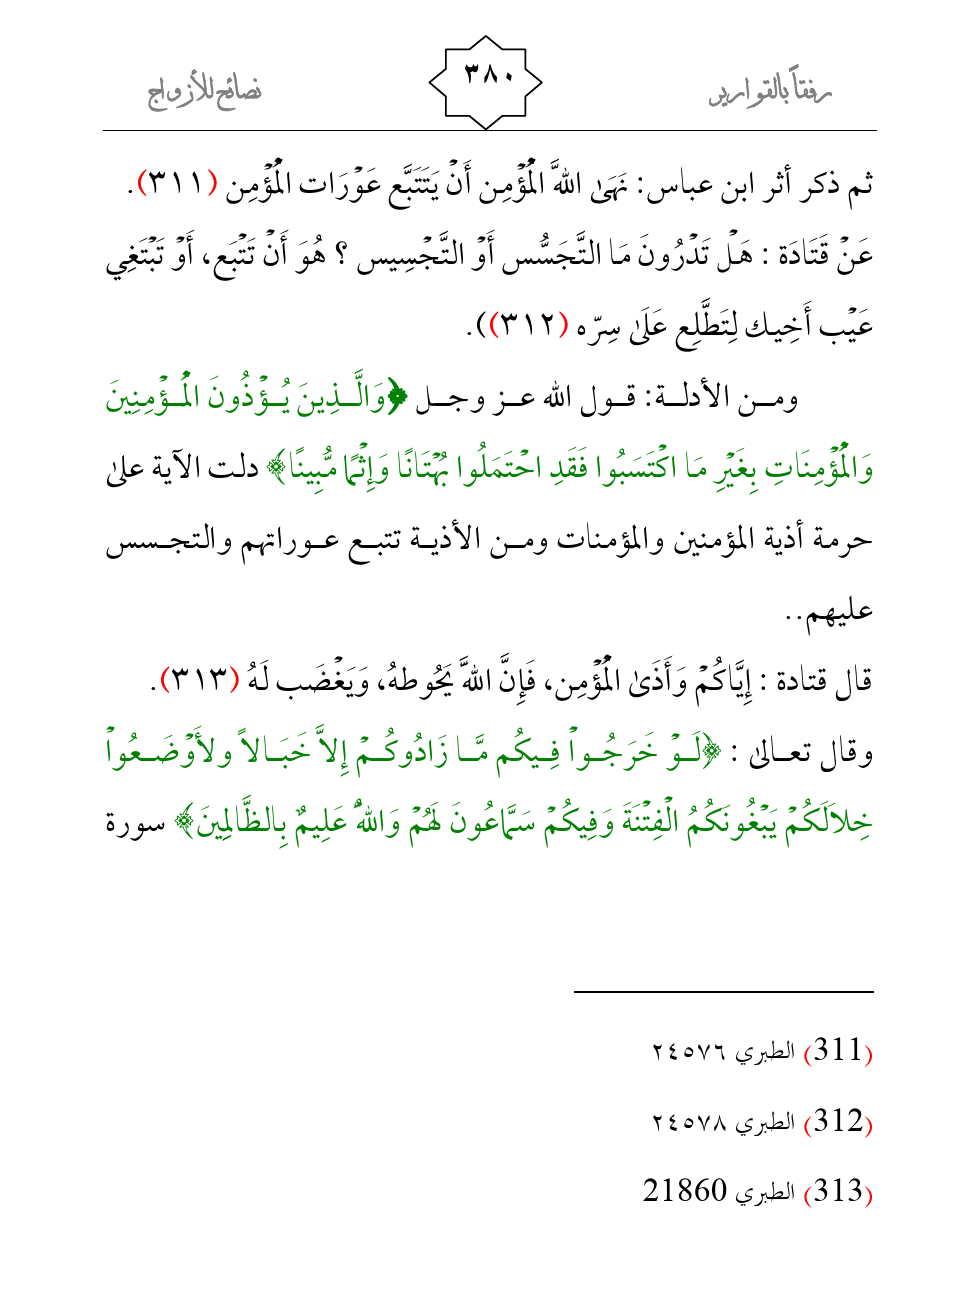 رفقاً بالقوارير ٣٨٠ نصائح للأزواج
ثم ذكر أثر ابن عباس: نَهَىٰ اللهَّ الْمُؤْمِن أَنْ يَتَتَبَّع عَوْرَات الْمُؤْمِن (٣١١).
عَنْ قَتَادَة : هَلْ تَدْرُونَ مَا التَّجَسُّس أَوْ التَّجْسِيس ؟ هُوَ أَنْ تَتْبَع، أَوْ تَبْتَغِي
عَيْب أَخِيك لِتَطَّلِع عَلَىٰ سِرّه (٣١٢)).
ومـن الأدلـة: قـول الله عـز وجـل ﴿وَالَّـذِينَ يُـؤْذُونَ الْمُـؤْمِنِينَ
وَالْمُؤْمِنَاتِ بِغَيْرِ مَا اكْتَسَبُوا فَقَدِ احْتَمَلُوا بُهْتَانًا وَإِثْمًا مُّبِينًا﴾ دلت الآية علىٰ
حرمة أذية المؤمنين والمؤمنات ومـن الأذيـة تتبـع عـوراتهم والتجـسس
عليهم..
قال قتادة : إِيَّاكُمْ وَأَذَىٰ الْمُؤْمِن، فَإِنَّ اللهَّ يَحُوطهُ، وَيَغْضَب لَهُ (٣١٣).
وقال تعـالىٰ : ﴿لَـوْ خَرَجُـواْ فِـيكُم مَّـا زَادُوكُـمْ إِلاَّ خَبَـالاً ولأَوْضَـعُواْ
خِلاَلَكُمْ يَبْغُونَكُمُ الْفِتْنَةَ وَفِيكُمْ سَمَّاعُونَ لَهُمْ وَاللهُّ عَلِيمٌ بِالظَّالِمِينَ﴾ سورة
(311) الطبري ٢٤٥٧٦
(312) الطبري ٢٤٥٧٨
(313) الطبري 21860